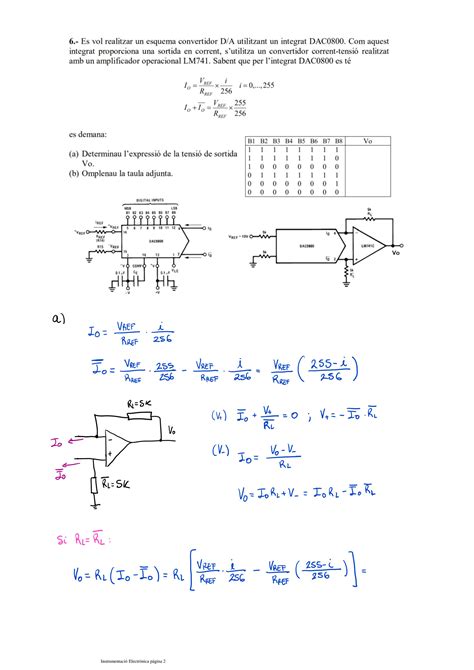 6.- Es vol realitzar un esquema convertidor D/A utilitzant un integrat DAC0800. Com aquest
integrat proporciona una sortida en corrent, s'utilitza un convertidor corrent-tensió realitzat
amb un amplificador operacional LM741. Sabent que per l'integrat DAC0800 es té
I_O = V_REF / R_REF × i / 256   i = 0,...,255
I_O + \overline{I_O} = V_REF / R_REF × 255 / 256
es demana:
(a) Determinau l'expressió de la tensió de sortida
Vo.
(b) Omplenau la taula adjunta.
B1 B2 B3 B4 B5 B6 B7 B8 Vo
1 1 1 1 1 1 1 1
1 1 1 1 1 1 1 0
1 0 0 0 0 0 0 0
0 1 1 1 1 1 1 1
0 0 0 0 0 0 0 1
0 0 0 0 0 0 0 0
DIGITAL INPUTS
MSB LSB
B1 B2 B3 B4 B5 B6 B7 B8
DAC0800
DAC0800
LM741C
Vo
a)
I_O = V_REF / R_REF · i / 256
\overline{I_O} = V_REF / R_REF · 255 / 256 - V_REF / R_REF · i / 256 = V_REF / R_REF ( 255 - i / 256 )
R_L = 5K
V_O
I_O
\overline{I_O}
\overline{R_L} = 5K
(V+) \overline{I_O} + V+ / \overline{R_L} = 0 ; V+ = - \overline{I_O} · \overline{R_L}
(V-) I_O = V_O - V- / R_L
V_O = I_O R_L + V- = I_O R_L - \overline{I_O} \overline{R_L}
Si R_L = \overline{R_L} :
V_O = R_L ( I_O - \overline{I_O} ) = R_L [ V_REF / R_REF · i / 256 - V_REF / R_REF ( 255 - i / 256 ) ] =
Instrumentació Electrònica página 2